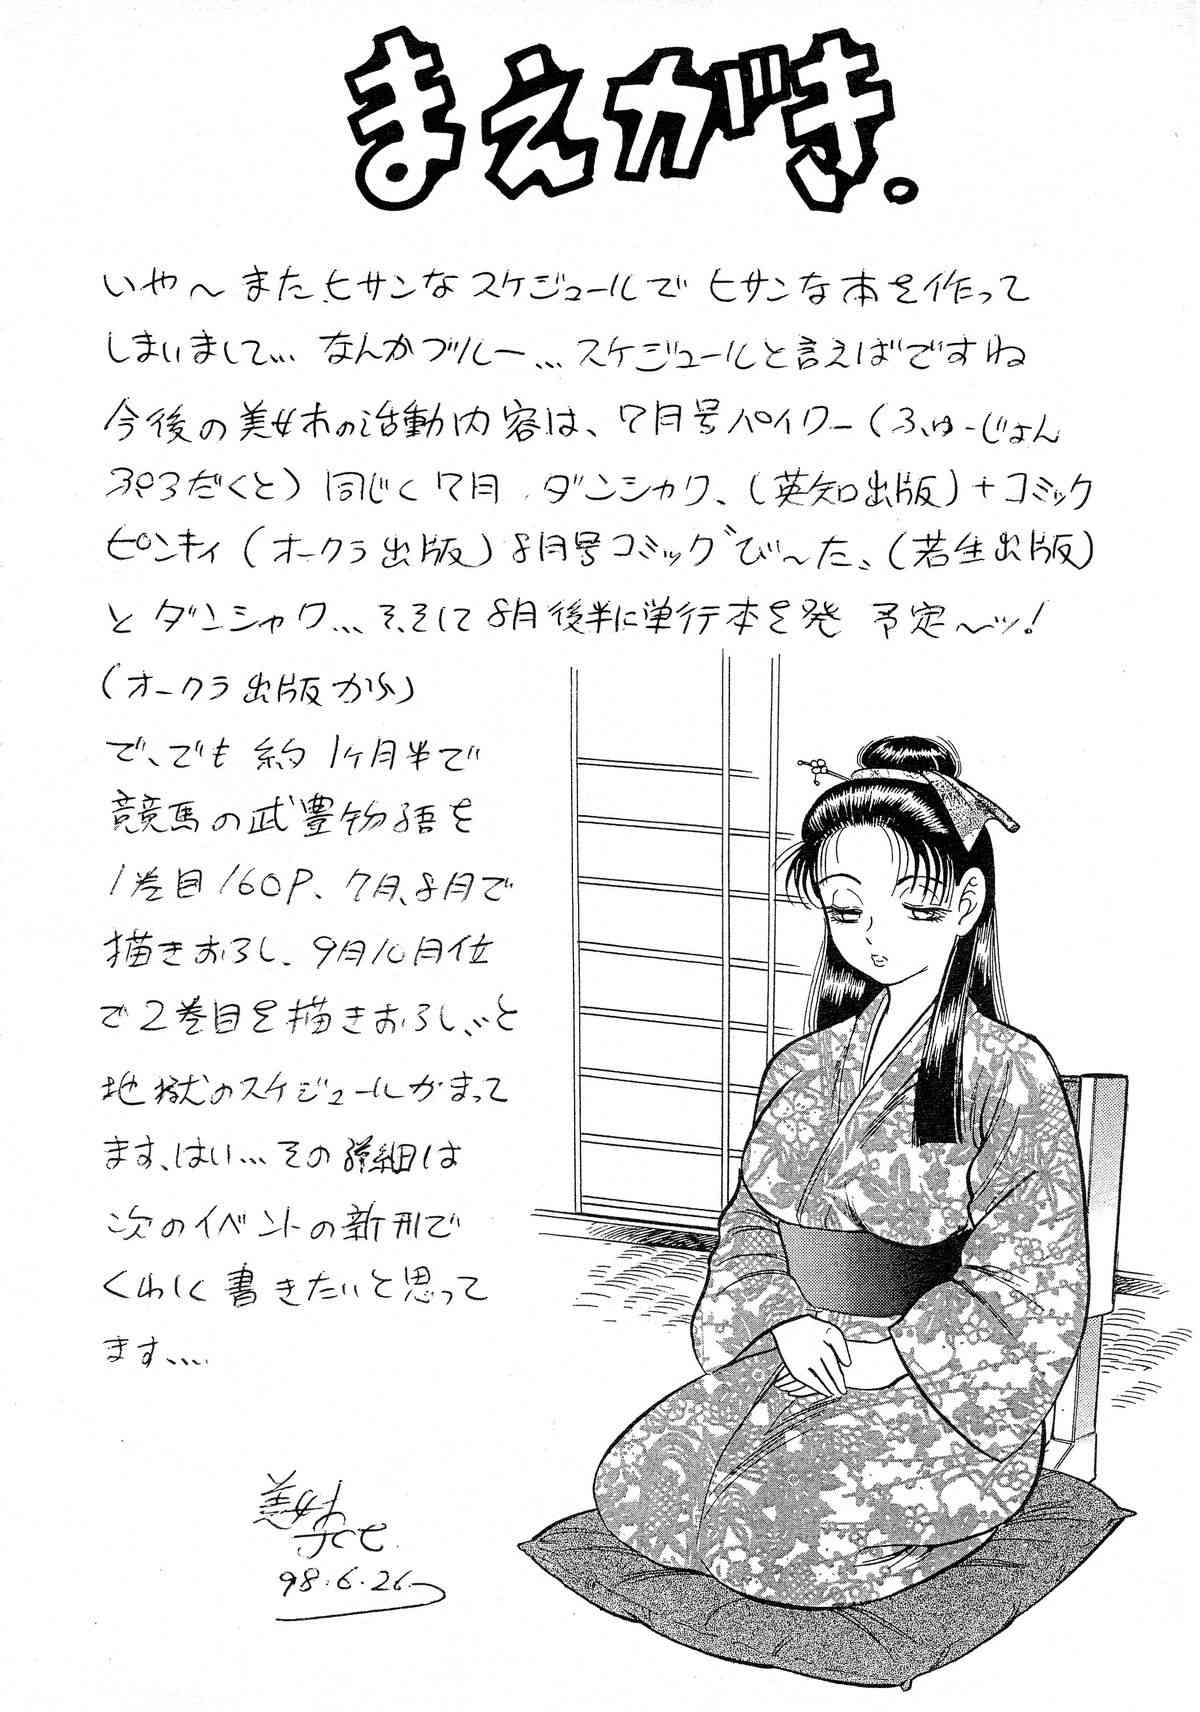 まえがき。
いや〜また、ヒサンなスケジュールで ヒサンな本を作って
しまいまして… なんかブルー… スケジュールと言えばですね
今後の美女木の活動内容は、7月号パイクー(ふゅーじょん
ぷろだくと) 同じく7月 ダンシャク、(英知出版)+コミック
ピンキィ(オークラ出版)8月号コミックび〜た、(若生出版)
とダンシャク… そ、そして8月後半に単行本を発 予定〜ッ!
(オークラ出版から)
で、でも 約1ヶ月半で
競馬の武豊物語を
1巻目160P、7月、8月で
描きおろし、9月10月位
で2巻目を描きおろし、と
地獄のスケジュールがまって
ます、はい… その詳細は
次のイベントの新刊で
くわしく書きたいと思って
ます…
美女木
98.6.26